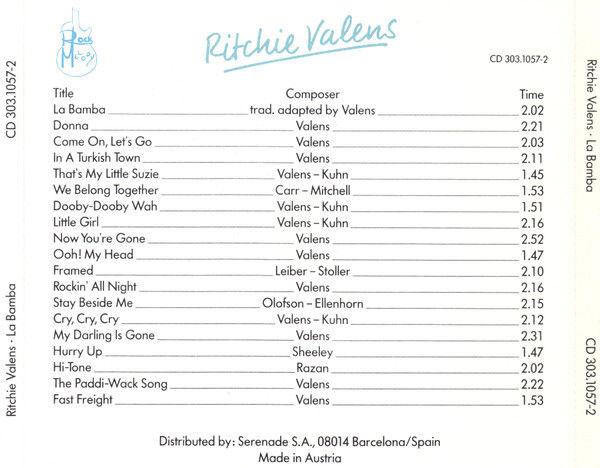 Rock
Mitology
Ritchie Valens
CD 303.1057-2
Title Composer Time
La Bamba trad. adapted by Valens 2.02
Donna Valens 2.21
Come On, Let's Go Valens 2.03
In A Turkish Town Valens 2.11
That's My Little Suzie Valens – Kuhn 1.45
We Belong Together Carr – Mitchell 1.53
Dooby-Dooby Wah Valens – Kuhn 1.51
Little Girl Valens – Kuhn 2.16
Now You're Gone Valens 2.52
Ooh! My Head Valens 1.47
Framed Leiber – Stoller 2.10
Rockin' All Night Valens 2.16
Stay Beside Me Olofson – Ellenhorn 2.15
Cry, Cry, Cry Valens – Kuhn 2.12
My Darling Is Gone Valens 2.31
Hurry Up Sheeley 1.47
Hi-Tone Razan 2.02
The Paddi-Wack Song Valens 2.22
Fast Freight Valens 1.53
Distributed by: Serenade S.A., 08014 Barcelona/Spain
Made in Austria
CD 303.1057-2
Ritchie Valens · La Bamba
Ritchie Valens · La Bamba
CD 303.1057-2